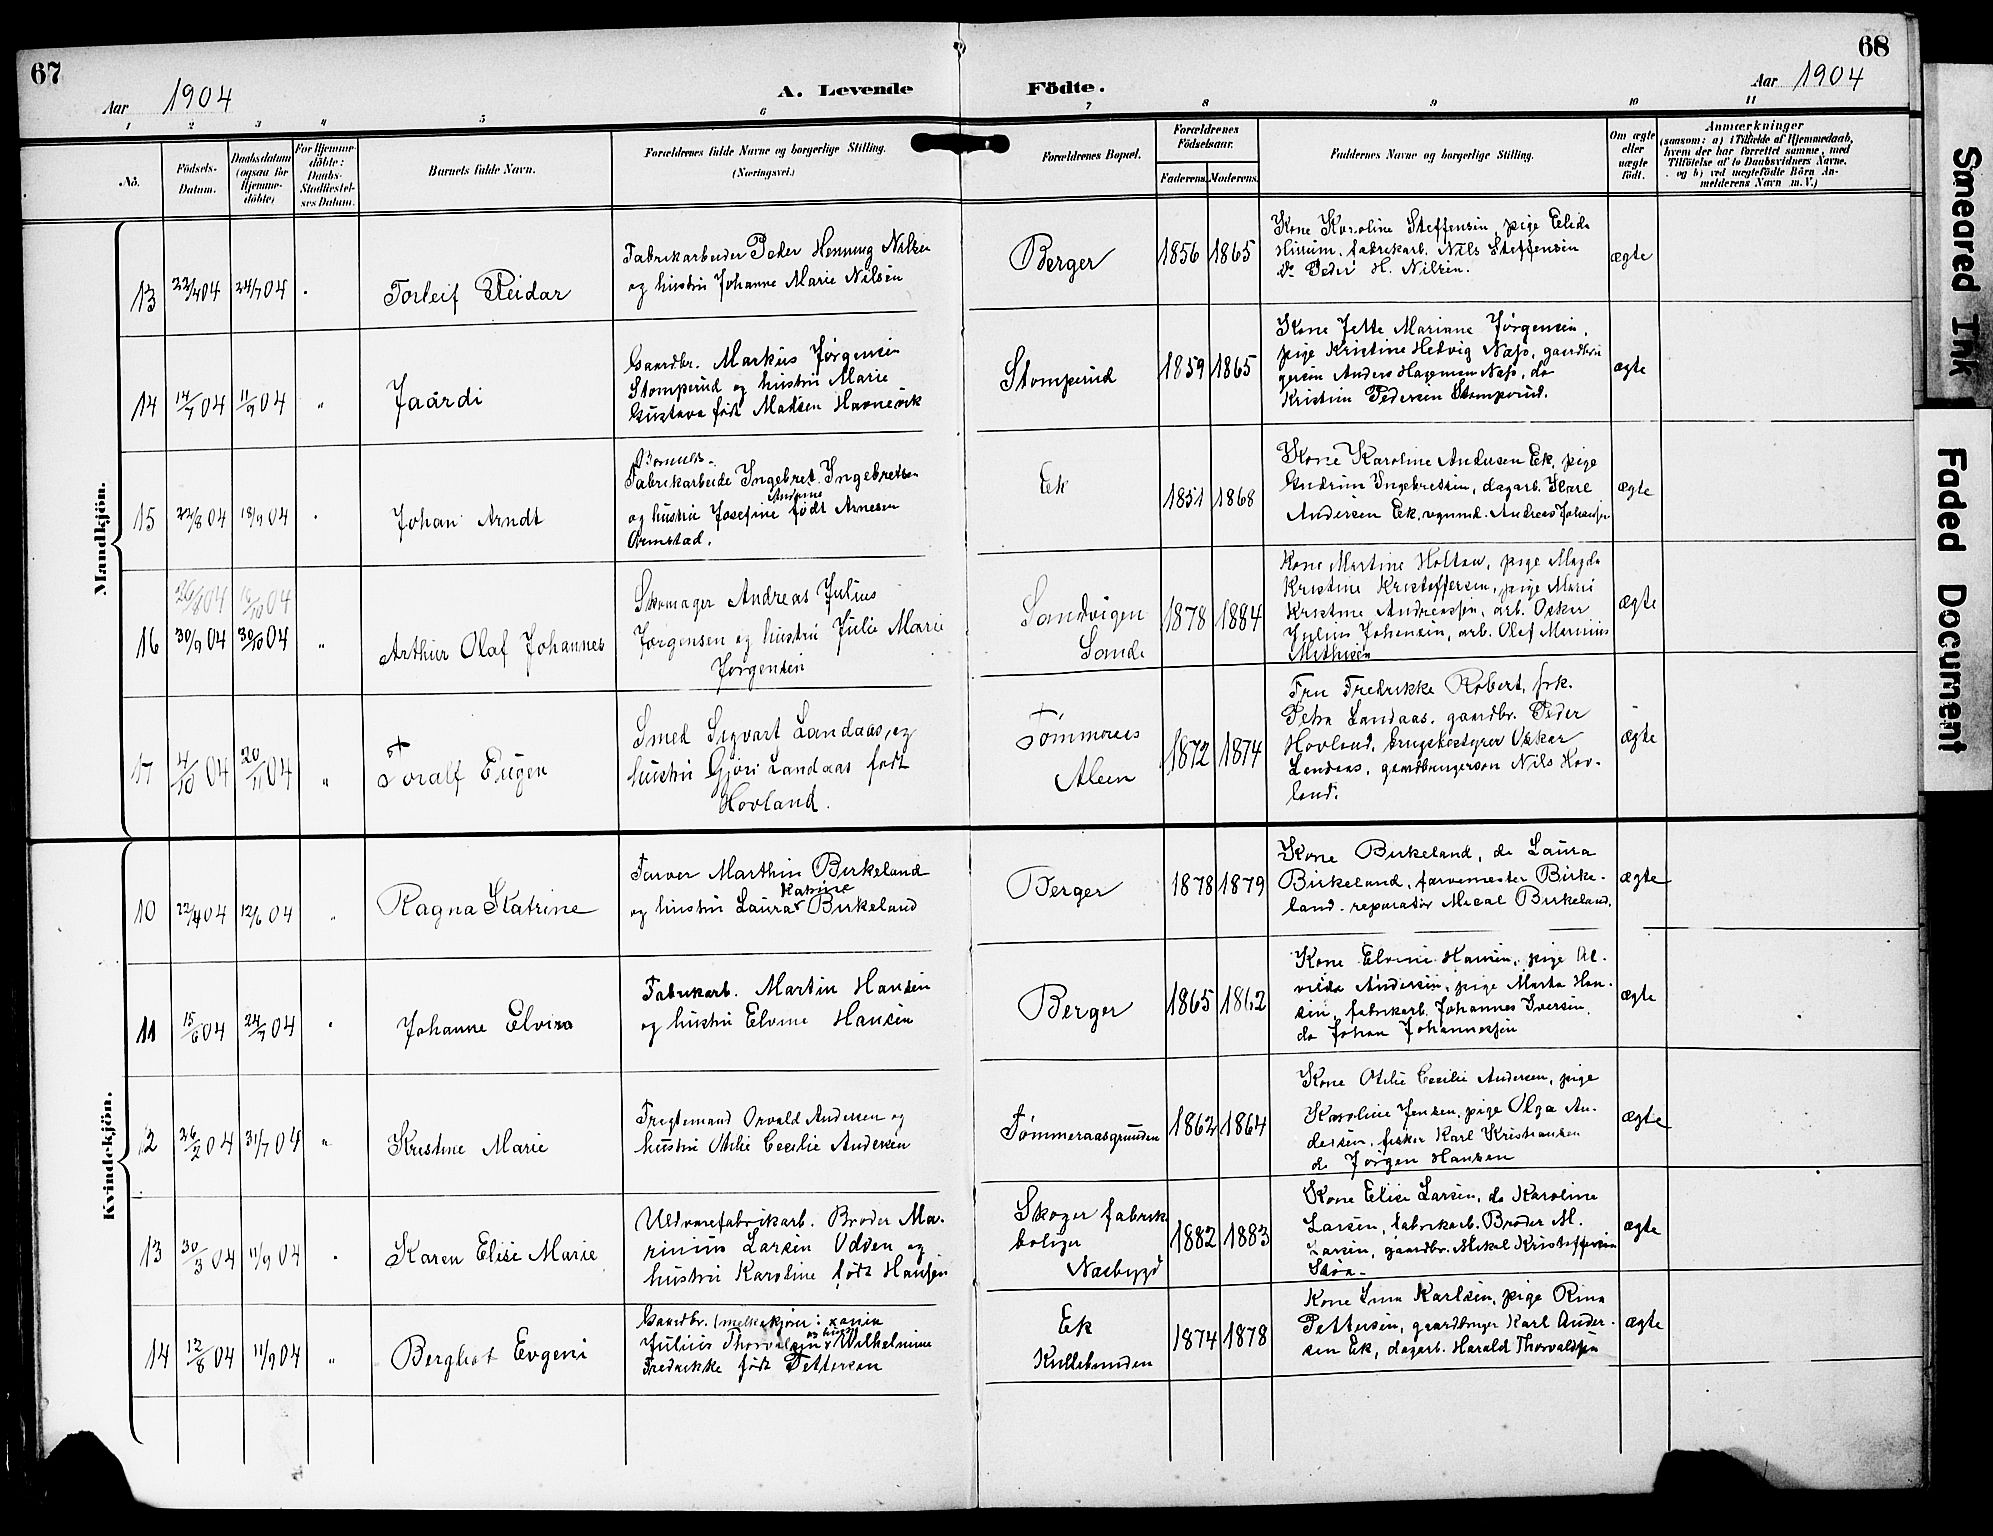 67
Aar 1904
A. Levende
Födte.
68
Aar 1904
1 2 3 4 5 6 7 8 9 10 11
No.
Födsels-Datum.
Daabsdatum (ogsaa for Hjemme-döbte)
For Hjemme-döbte: Daabs-Stadfæstel-ses Datum.
Barnets fulde Navn.
Forældrenes fulde Navne og borgerlige Stilling.
(Næringsvei.)
Forældrenes Bopæl.
Forældrenes Födselsaar.
Faderens. Moderens.
Faddernes Navne og borgerlige Stilling.
Om ægte eller uægte födt.
Anmærkninger
(saasom: a) i Tilfælde af Hjemmedaab,
hvem der har forrettet samme, med
Tilföielse af to Daabsvidners Navne.
og b) ved uægtefödte Börn An-
melderens Navn m. V.)
Mandkjön.
13 22/4 04 24/7 04
Torleif Reidar
Fabrikarbeider Peder Henning Nilsen
og hustru Johanne Marie Nilsen
Berger
1856 1865
Kone Karoline Steffensen, pige Elida
fabrikarb. Nils Steffensen
do Peder H. Nilsen.
ægte
14 14/7 04 11/9 04 "
Jaardi
Gaardbr. Markus Jørgensen
Stomperud og hustru Marie
Gustava født Madsen Havnevik
Stomperud
1859 1865
Kone Jette Mariane Jørgensen,
pige Kristine Hedvig Næss, gaardbru
gersøn Anders Hageman Næss, do
Kristian Pedersen Stomperud.
ægte
15 22/8 04 18/9 04
Johan Arndt
Bomulds-
Fabrikarbeide Ingebret Ingebretsen
og hustru Josefine Andrine født Arnesen
Ormstad.
Ek
1851 1868
Kone Karoline Andersen Ek, pige
Gudrun Ingebretsen, dagarb. Karl
Andersen Ek, vognmd. Andreas Johansen
ægte
26/8 04 16/10 04
16 30/9 04 30/10 04 "
Arthur Olaf Johannes
Skomager Andreas Julius
Jørgensen og hustru Julie Marie
Jørgensen
Sandvigen
Sande
1878 1884
Kone Martine Holtan, pige Magda
Kristine Kristoffersen, pige Marie
Kristine Andreassen, arb. Oskar
Julius Johansen, arb. Olaf Marinius
Mathisen
ægte
17 4/10 04 20/11 04 "
Toralf Eugen
Smed Sigvart Landaas, og
hustru Gjøri Landaas født
Hovland.
Tømmeraas
Aleen
1872 1874
Fru Fredrikke Robert, frk.
Petra Landaas, gaardbr. Peder
Hovland, brugsbestyrer Oskar
Landaas, gaardbrugersøn Nils Hov-
land.
ægte
Kvindekjön.
10 22/4 04 12/6 04 "
Ragna Katrine
Farver Marthin Birkeland
og hustru Laura Katrine Birkeland
Berger
1878 1879
Kone Birkeland, do Laura
Birkeland, farvemester Birke-
land, reparatør Mical Birkeland.
ægte
11 15/6 04 24/7 04 "
Johanne Elvina
Fabrikarb. Martin Hansen
og hustru Elvine Hansen
Berger
1865 1862
Kone Elvine Hansen, pige Al-
vilda Andersen, pige Marta Han-
sen, fabrikarb. Johannes Iversen,
do Johan Johannessen
ægte
12 26/2 04 31/7 04 "
Kristine Marie
Fragtemand Orvald Andersen og
hustru Otilie Cecilie Andersen
Tømmeraasgrunden
1862 1864
Kone Otilie Cecilie Andersen, pige
Karoline Jensen, pige Olga An-
dersen, fisker Karl Kristiansen
do Jørgen Hansen
ægte
13 30/3 04 11/9 04 "
Karen Elise Marie
Uldvarefabrikarb. Broder Ma-
rinius Larsen Odden og
hustru Karoline født Hansen
Skoger fabrik
boliger
Nasbygd
1882 1883
Kone Elise Larsen, do Karoline
Larsen, fabrikarb. Broder M.
Larsen, gaardbr. Mikal Kristoffersen
ægte
14 12/8 04 11/9 04 "
Bergliot Evgeni
Gaardbr.
Julius Thorvalsen og hustru Wilhelmine
Fredrikke født Pettersen
Ek
Kullebunden
1874 1878
Kone Karlsen, pige Rina
Pettersen, gaardbruger Karl Ander-
sen Ek, dagarb. Harald Thorvaldsen
ægte
Smeared Ink
Faded Document